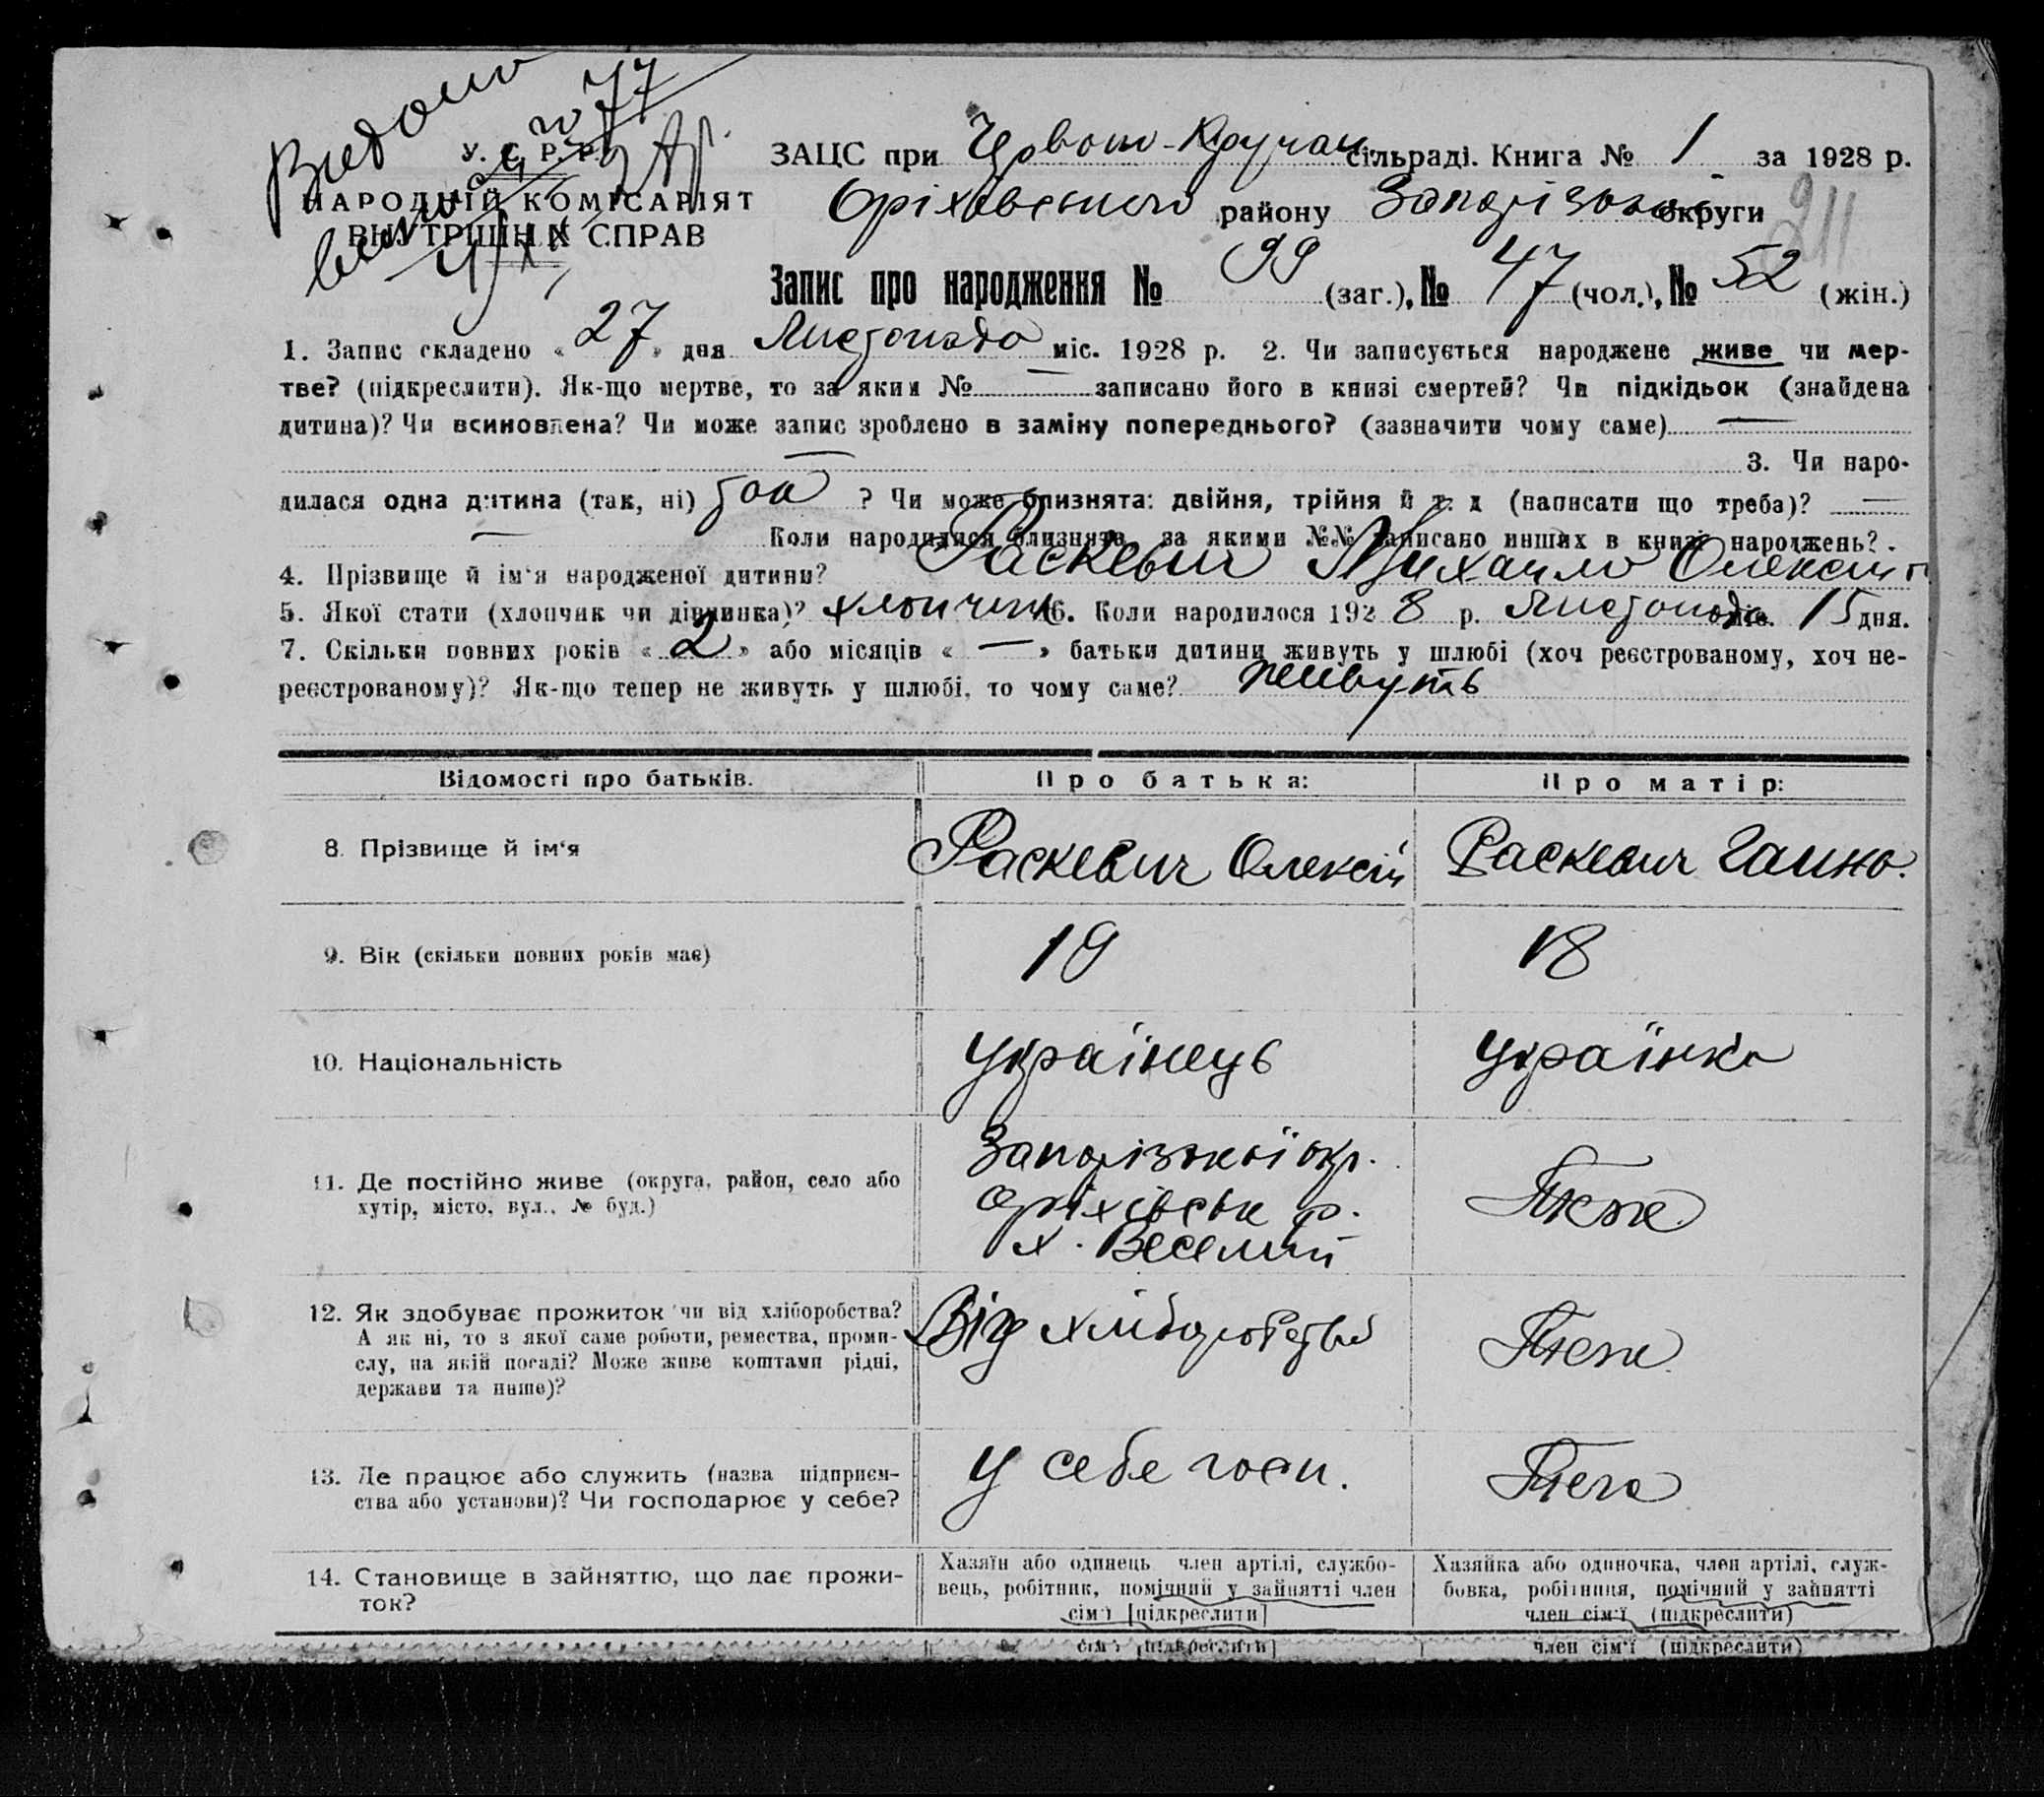 Видано
77
У. С. Р. Р.
НАРОДНІЙ КОМІСАРІЯТ
ВНУТРІШНІХ СПРАВ
ЗАЦС при Червоно-Кручан. сільраді. Книга № 1 за 1928 р.
Оріхівського району Запорізької округи
211
Запис про народження № 99 (заг.), № 47 (чол.), № 52 (жін.)
1. Запис складено « 27 » дня Листопада міс. 1928 р. 2. Чи записується народжене живе чи мер-
тве? (підкреслити). Як-що мертве, то за яким № — записано його в книзі смертей? Чи підкідьок (знайдена
дитина)? Чи всиновлена? Чи може запис зроблено в заміну попереднього? (зазначити чому саме) —
— 3. Чи наро-
дилася одна дитина (так, ні) так ? Чи може близнята: двійня, трійня й т. д (написати що треба)? —
— Коли народилися близнята, за якими №№ записано инших в книзі народжень? .
4. Прізвище й ім'я народженої дитини? Раскевич Михайло Олексій
5. Якої стати (хлопчик чи дівчинка)? хлопчик 6. Коли народилося 1928 р. Листопада міс. 15 дня.
7. Скільки повних років « 2 » або місяців « — » батьки дитини живуть у шлюбі (хоч реєстрованому, хоч не-
реєстрованому)? Як-що тепер не живуть у шлюбі, то чому саме? живуть
Відомості про батьків. Про батька: Про матір:
8. Прізвище й ім'я Раскевич Олексій Раскевич Ганна.
9. Вік (скільки повних років має) 19 18
10. Національність Українець Українка
11. Де постійно живе (округа, район, село або
хутір, місто, вул., № буд.)
Запорізької окр.
Оріхівськ р.
х. Веселий
Теж
12. Як здобуває прожиток чи від хліборобства?
А як ні, то з якої саме роботи, ремества, проми-
слу, на якій посаді? Може живе коштами рідні,
держави та инше)?
Від хліборобства
Теж
13. Де працює або служить (назва підприєм-
ства або установи)? Чи господарює у себе?
У себе госп.
14. Становище в зайняттю, що дає прожи-
ток?
Хазяїн або одинець член артілі, службо-
вець, робітник, помічний у зайнятті член
сім'ї [підкреслити]
Хазяйка або одиночка, член артілі, служ-
бовка, робітниця, помічний у зайнятті
член сім'ї (підкреслити)
сім'ї [підкреслити] член сім'ї (підкреслити)